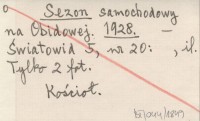 Sezon samochodowy
na Obidowej. 1928. —
Światowid 5, nr 20: , il.
Tylko 2 fot.
Kościoł.